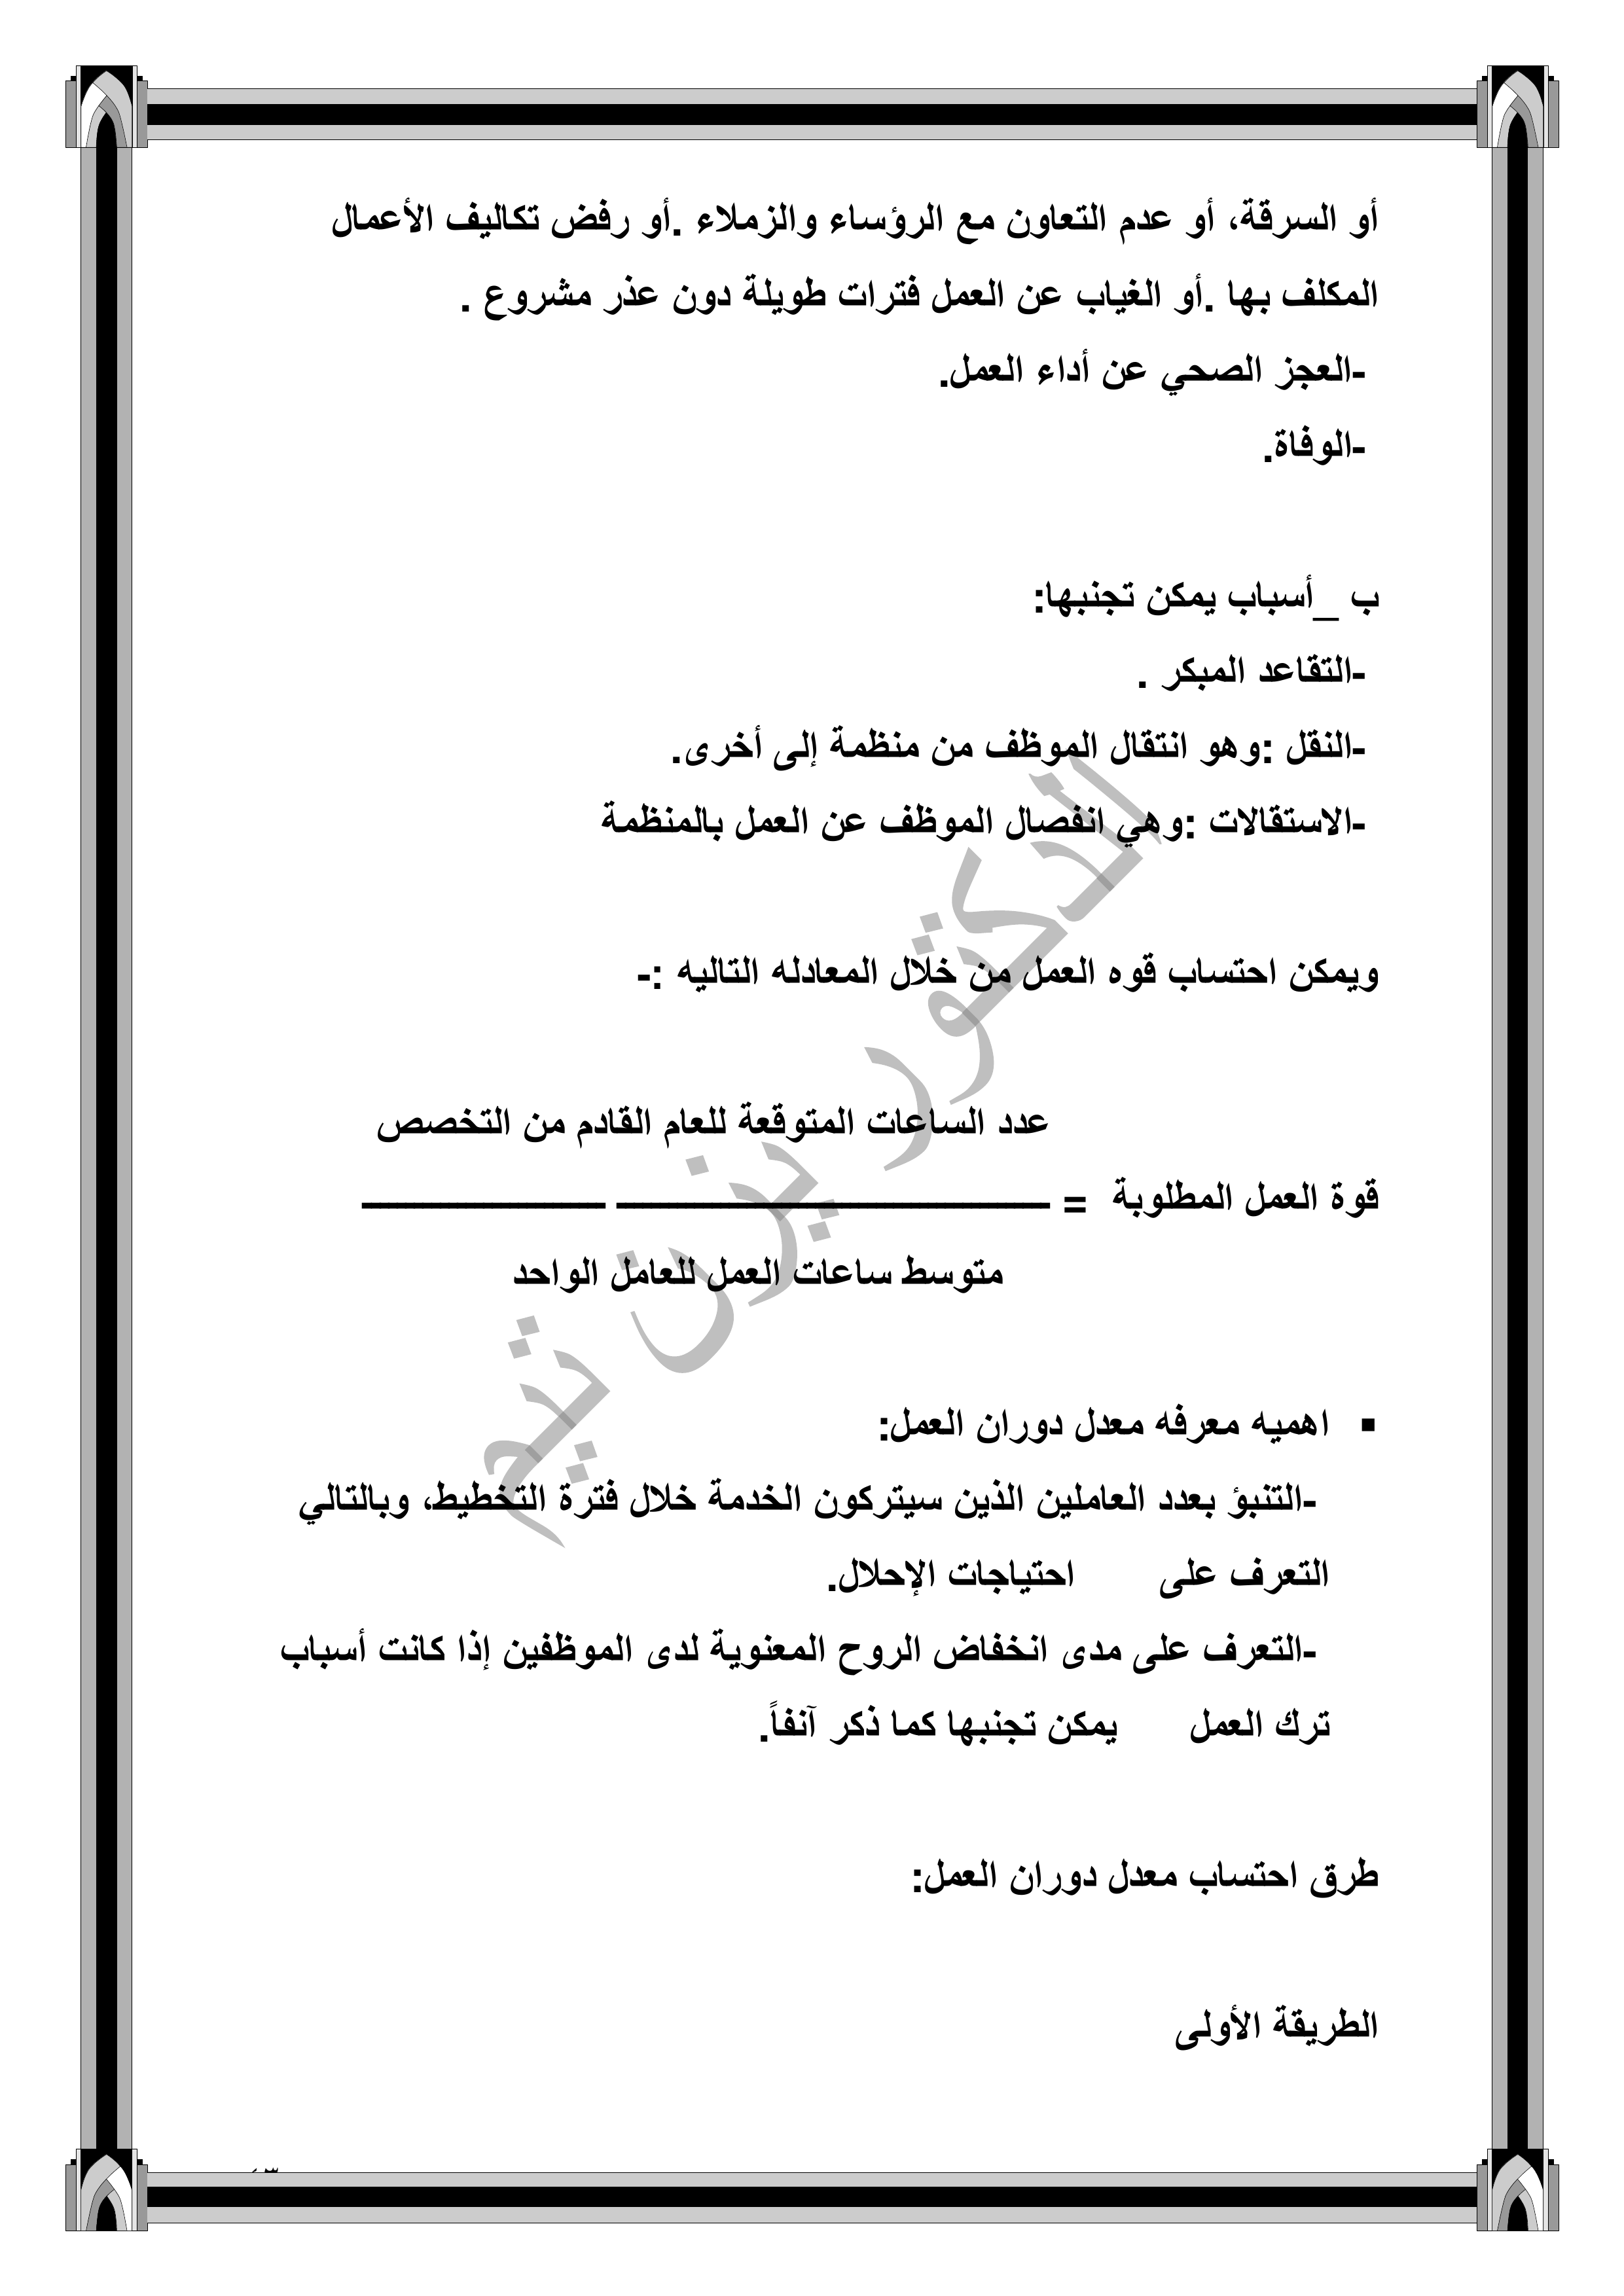 أو السرقة، أو عدم التعاون مع الرؤساء والزملاء .أو رفض تكاليف الأعمال
المكلف بها .أو الغياب عن العمل فترات طويلة دون عذر مشروع .
-العجز الصحي عن أداء العمل.
-الوفاة.
ب _أسباب يمكن تجنبها:
-التقاعد المبكر .
-النقل :وهو انتقال الموظف من منظمة إلى أخرى.
-الاستقالات :وهي انفصال الموظف عن العمل بالمنظمة
ويمكن احتساب قوه العمل من خلال المعادله التاليه :-
عدد الساعات المتوقعة للعام القادم من التخصص
قوة العمل المطلوبة = ــــــــــــــــــــــــــــــــــــ ــــــــــــــــــــ
متوسط ساعات العمل للعامل الواحد
▪ اهميه معرفه معدل دوران العمل:
-التنبؤ بعدد العاملين الذين سيتركون الخدمة خلال فترة التخطيط، وبالتالي
التعرف على احتياجات الإحلال.
-التعرف على مدى انخفاض الروح المعنوية لدى الموظفين إذا كانت أسباب
ترك العمل يمكن تجنبها كما ذكر آنفاً.
طرق احتساب معدل دوران العمل:
الطريقة الأولى
الدكتور يزن تيم